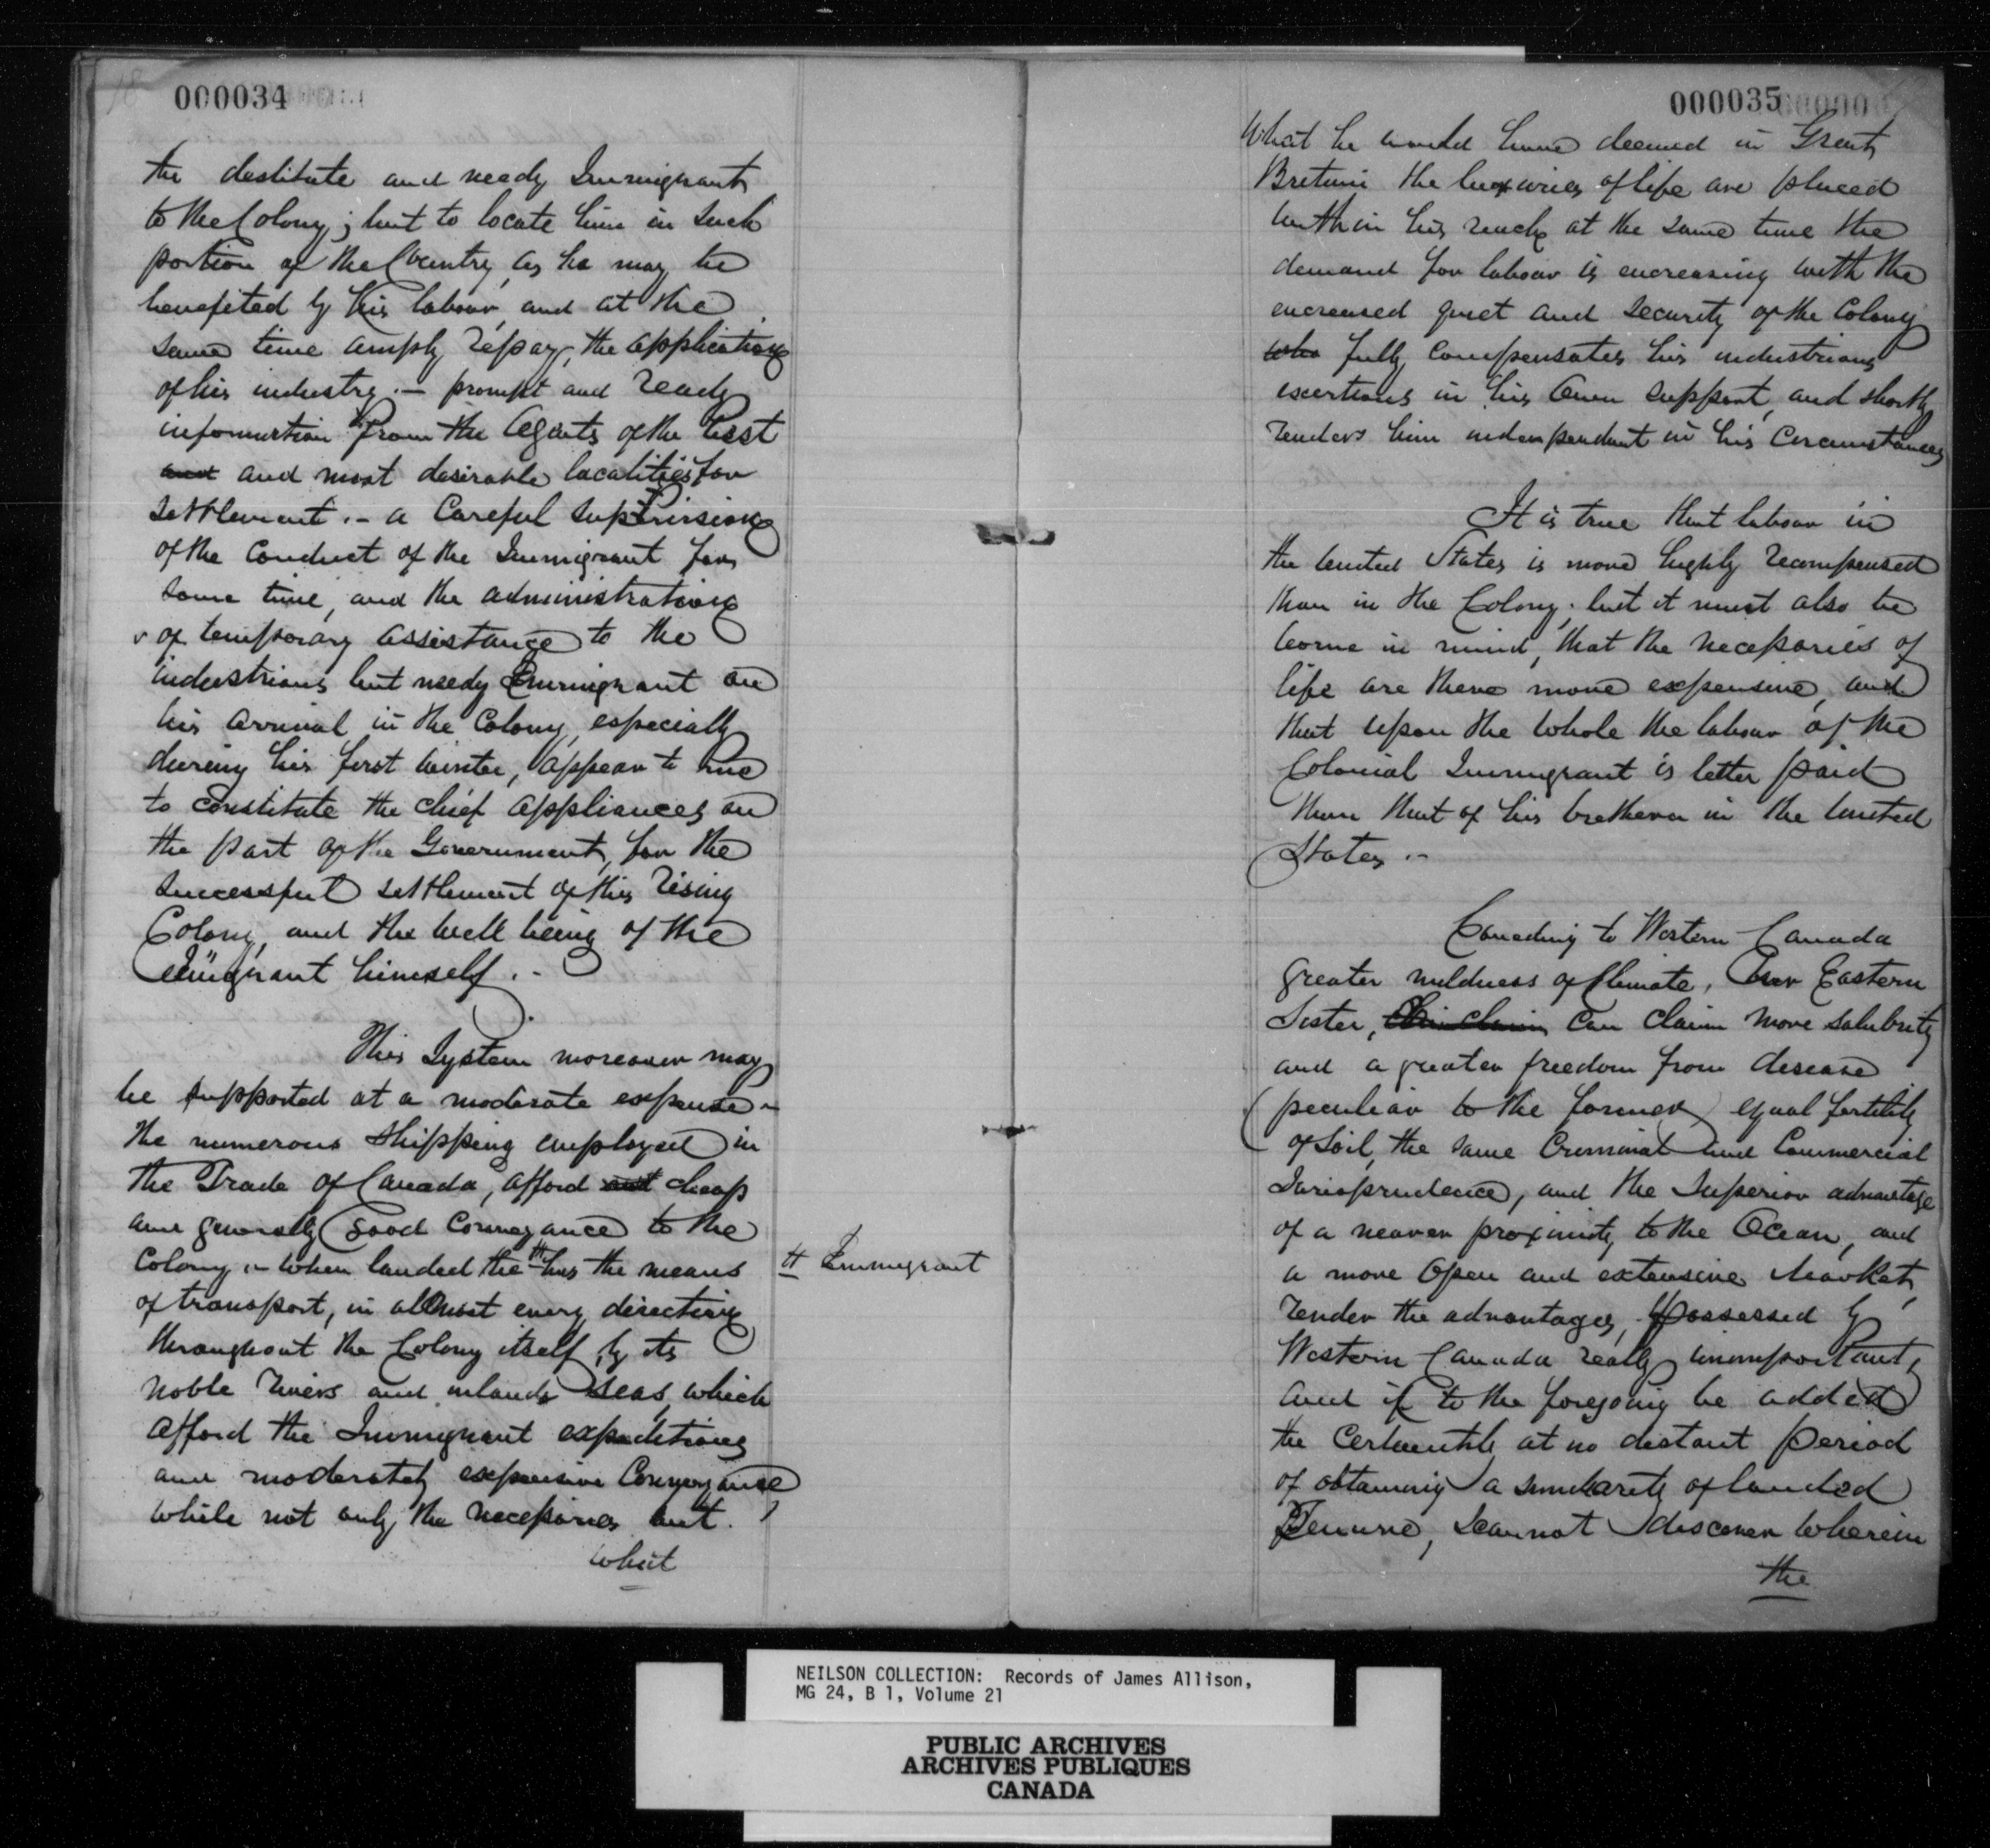 18
000034
the destitute and needy Immigrant
to the Colony; but to locate him in such
portion of the Country, as he may be
benefited by his labour, and at the
same time amply repay, the application
of his industry.— prompt and ready
information from the Agents of the best
and and most desirable localities for
settlement.- a Careful supervision
of the Conduct of the Immigrant for
some time, and the administration
of temporary assistance to the
industrious but needy Emmigrant on
his arrival in the Colony, especially
during his first winter, appear to me
to constitute the chief appliances on
the part of the Government, for the
successful settlement of this rising
Colony, and the well being of the
himself.-
This System moreover may
be supported at a moderate expense-
the numerous shipping employed in
the Trade of Canada, afford cheap
and generally good Conveyance to the
Colony.- When landed the # has the means
# Emmigrant
of transport, in almost every direction
throughout the Colony itself, by its
noble rivers and inland seas, which
afford the Immigrant expeditious
and moderately expensive Conveyance
while not only the necessaries but.
what
000035
What he would have deemed in Great
Britain the luxuries of life are placed
within his reach, at the same time the
demand for labour is encreasing with the
encreased quiet and security of the Colony
who fully compensates his industrious
exertions in his Own support, and shortly
renders him independent in his Circumstances
It is true that labour in
the United States is more highly recompensed
than in the Colony, but it must also be
borne in mind, that the necessaries of
life are there more expensive, and
that upon the whole the labour of the
Colonial Immigrant is better paid
than that of his bretheren in the United
States.-
Conceding to Western Canada
greater mildness of Climate, Her Eastern
Sister, can claim more salubrity
and a greater freedom from disease
(peculiar to the former) equal fertility
of soil, the same Criminal and Commercial
Jurisprudence, and the superior advantage
of a nearer proximity to the Ocean, and
a more Open and extensive Market,
render the advantages, possessed by
Western Canada really unimportant,
and if to the foregoing be added
the certainty at no distant period
of obtaining a similarity of landed
Tenure, I cannot discover wherein
the
NEILSON COLLECTION: Records of James Allison,
MG 24, B 1, Volume 21
PUBLIC ARCHIVES
ARCHIVES PUBLIQUES
CANADA